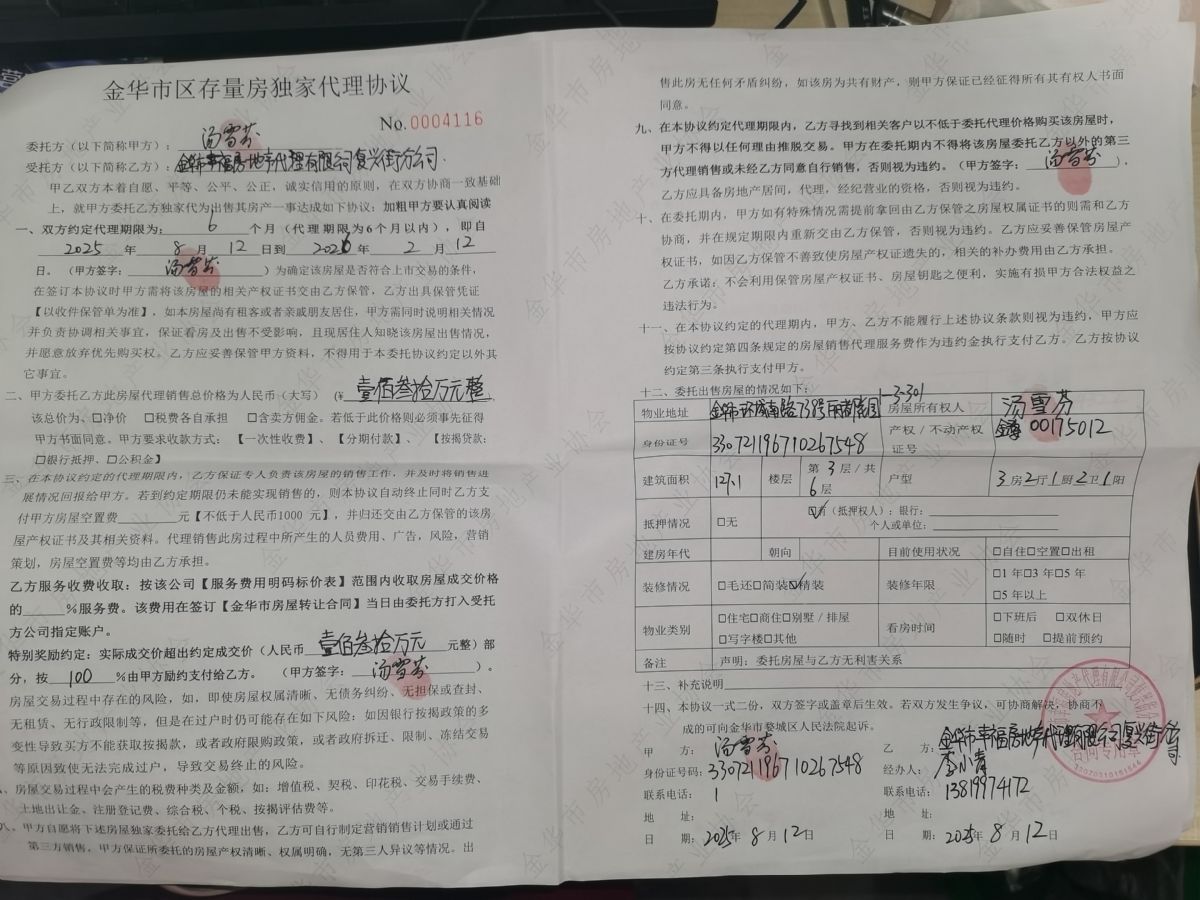 金华市区存量房独家代理协议
No.0004116
委托方（以下简称甲方）：汤雪芬
受托方（以下简称乙方）：金华幸福房地产代理有限公司复兴街分公司
甲乙双方本着自愿、平等、公平、公正，诚实信用的原则，在双方协商一致基础
上，就甲方委托乙方独家代为出售其房产一事达成如下协议：加粗甲方要认真阅读
一、双方约定代理期限为：6个月（代理期限为6个月以内），即自
2025年8月12日到2026年2月12
日。（甲方签字：汤雪芬）为确定该房屋是否符合上市交易的条件，
在签订本协议时甲方需将该房屋的相关产权证书交由乙方保管，乙方出具保管凭证
【以收件保管单为准】，如本房屋尚有租客或者亲戚朋友居住，甲方需同时说明相关情况
并负责协调相关事宜，保证看房及出售不受影响，且现居住人知晓该房屋出售情况，
并愿意放弃优先购买权。乙方应妥善保管甲方资料，不得用于本委托协议约定以外其
它事宜。
二、甲方委托乙方此房屋代理销售总价格为人民币（大写）（¥壹佰叁拾万元整
该总价为、□净价 □税费各自承担 □含卖方佣金。若低于此价格则必须事先征得
甲方书面同意。甲方要求收款方式：【一次性收费】、【分期付款】、【按揭贷款：
□银行抵押、□公积金】
三、在本协议约定的代理期限内，乙方保证专人负责该房屋的销售工作，并及时将销售进
展情况回报给甲方。若到约定期限仍未能实现销售的，则本协议自动终止同时乙方支
付甲方房屋空置费______元【不低于人民币1000 元】，并归还交由乙方保管的该房
屋产权证书及其相关资料。代理销售此房过程中所产生的人员费用、广告，风险，营销
策划，房屋空置费等均由乙方承担。
乙方服务收费收取：按该公司【服务费用明码标价表】范围内收取房屋成交价格
的____%服务费。该费用在签订【金华市房屋转让合同】当日由委托方打入受托
方公司指定账户。
特别奖励约定：实际成交价超出约定成交价（人民币壹佰叁拾万元元整）部
分，按100%由甲方励约支付给乙方。（甲方签字：汤雪芬）。
房屋交易过程中存在的风险，如，即使房屋权属清晰、无债务纠纷、无担保或查封、
无租赁、无行政限制等，但是在过户时仍可能存在如下风险：如因银行按揭政策的多
变性导致买方不能获取按揭款，或者政府限购政策，或者政府拆迁、限制、冻结交易
等原因致使无法完成过户，导致交易终止的风险。
、房屋交易过程中会产生的税费种类及金额，如：增值税、契税、印花税、交易手续费、
土地出让金、注册登记费、综合税、个税、按揭评估费等。
八、甲方自愿将下述房屋独家委托给乙方代理出售，乙方可自行制定营销销售计划或通过
第三方销售，甲方保证所委托的房屋产权清晰、权属明确，无第三人异议等情况。出
售此房无任何矛盾纠纷，如该房为共有财产，则甲方保证已经征得所有其有权人书面
同意。
九、在本协议约定代理期限内，乙方寻找到相关客户以不低于委托代理价格购买该房屋时，
甲方不得以任何理由推脱交易。甲方在委托期内不得将该房屋委托乙方以外的第三
方代理销售或未经乙方同意自行销售，否则视为违约。（甲方签字：汤雪芬），
乙方应具备房地产居间，代理，经纪营业的资格，否则视为违约。
十、在委托期内，甲方如有特殊情况需提前拿回由乙方保管之房屋权属证书的则需和乙方
协商，并在规定期限内重新交由乙方保管，否则视为违约。乙方应妥善保管房屋产
权证书，如因乙方保管不善致使房屋产权证遗失的，相关的补办费用由乙方承担。
乙方承诺：不会利用保管房屋产权证书、房屋钥匙之便利，实施有损甲方合法权益之
违法行为。
十一、在本协议约定的代理期内，甲方、乙方不能履行上述协议条款则视为违约，甲方应
按协议约定第四条规定的房屋销售代理服务费作为违约金执行支付乙方。乙方按协议
约定第三条执行支付甲方。
十二、委托出售房屋的情况如下：
1-3-301
物业地址 金华市环城南路738号丽都花园 房屋所有权人 汤雪芬
身份证号 330721196710267548 产权／不动产权证号 00175012
建筑面积 127.1 楼层 第3层/共6层 户型 3房2厅1厨2卫1阳
抵押情况 □无 ☑有（抵押权人）：银行：
个人或单位：
建房年代 朝向 目前使用状况 □自住□空置□出租
装修情况 □毛还□简装☑精装 装修年限 □1年□3年□5年
□5年以上
物业类别 □住宅□商住□别墅／排屋 看房时间 □下班后 □双休日
□写字楼□其他 □随时 □提前预约
备注 声明：委托房屋与乙方无利害关系
十三、补充说明
十四、本协议一式二份，双方签字或盖章后生效。若双方发生争议，可协商解决，协商不
成的可向金华市婺城区人民法院起诉。
甲 方：汤雪芬 乙 方：金华市幸福房地产代理有限公司复兴街分公司
身份证号码：330721196710267548 经办人：李小青
联系电话：1 联系电话：13819974172
地 址： 地 址：
日 期：2025年8月12日 日 期：2025年8月12日
合同专用章